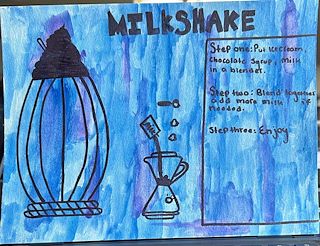 MILKSHAKE
Step one: Put Icecream,
chocolate Syrup, milk
in a blender.
Step two: Blend together
add more milk if
needed.
Step three: Enjoy